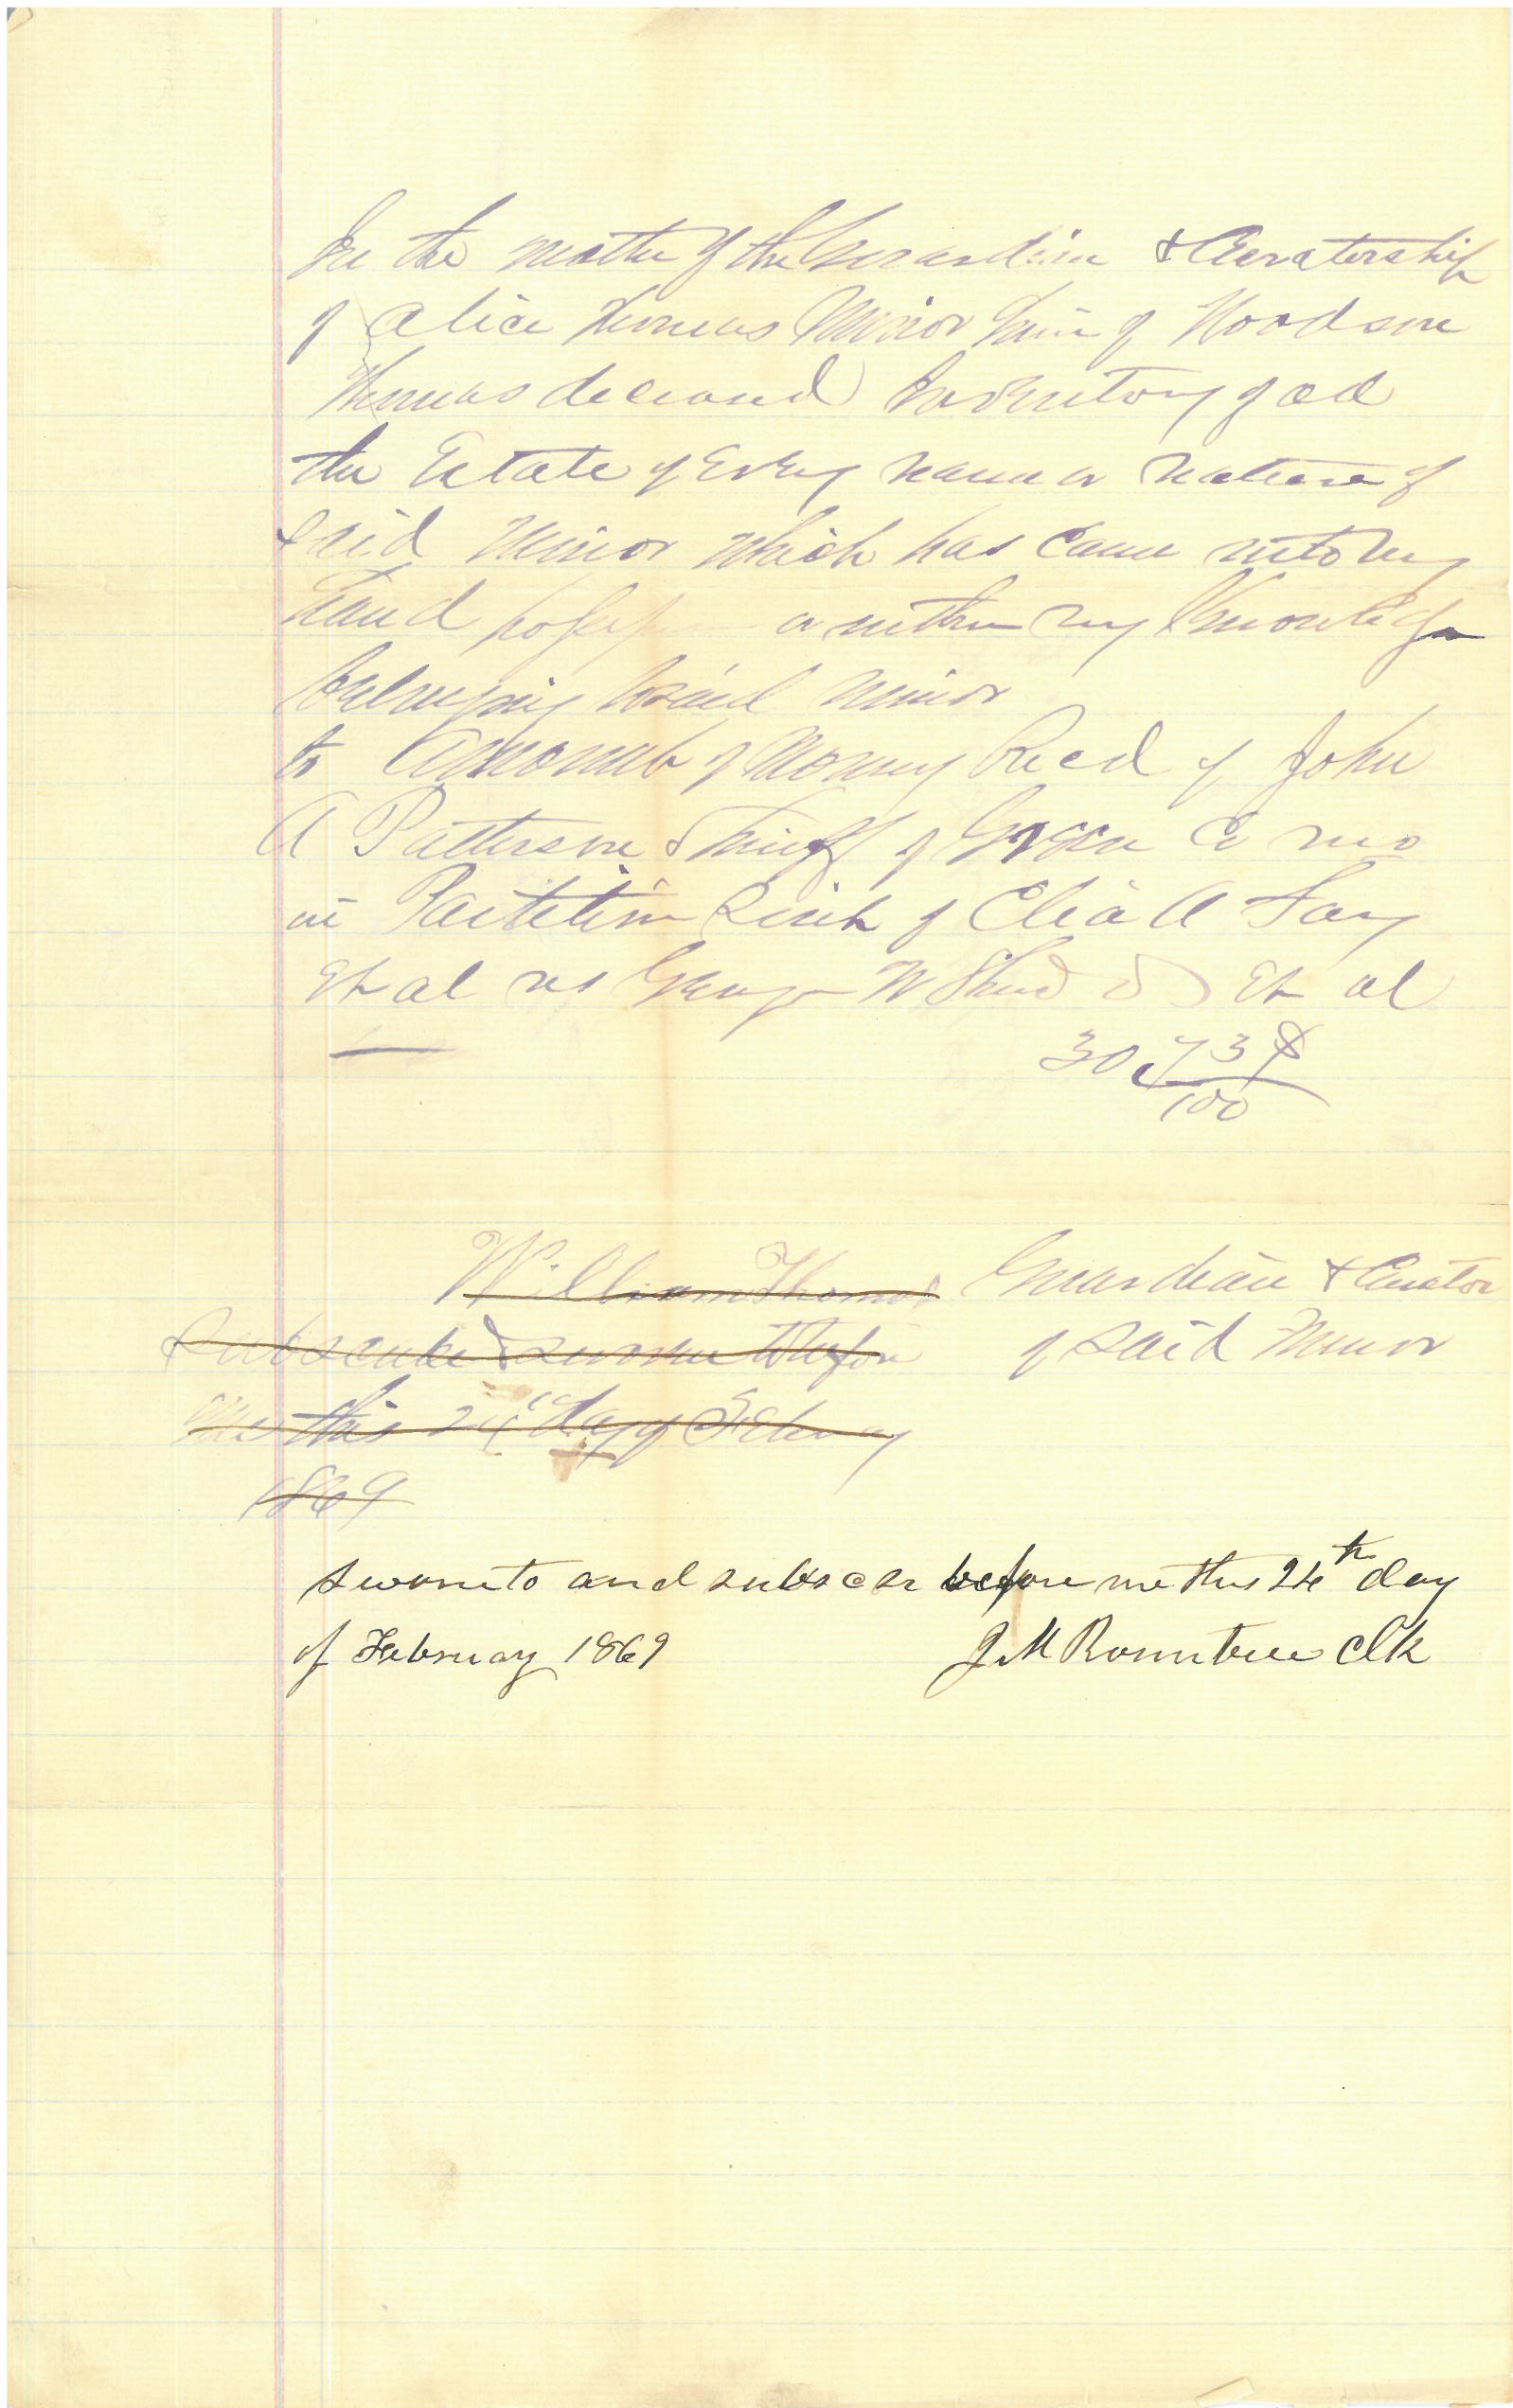 In the matter of the Guardian & Curatorship
of Alice Thomas Minor heir of Woodson
Thomas deceased Inventory of all
the Estate of Every name or nature of
said Minor which has came into my
hand or within my Knowledge
belonging to said minor
to Amount of Money Recd of John
A Patterson Sheriff of Green Co Mo
in Partition Suit of A Fay
Et al vs George W Et al
30 73 $
100
William Thomas Guardian & Curator
Subscribed & sworn to before of said Minor
me this 24 day of
1869
Sworn to and subscr before me this 24th day
of February 1869 J M Rountree Clk